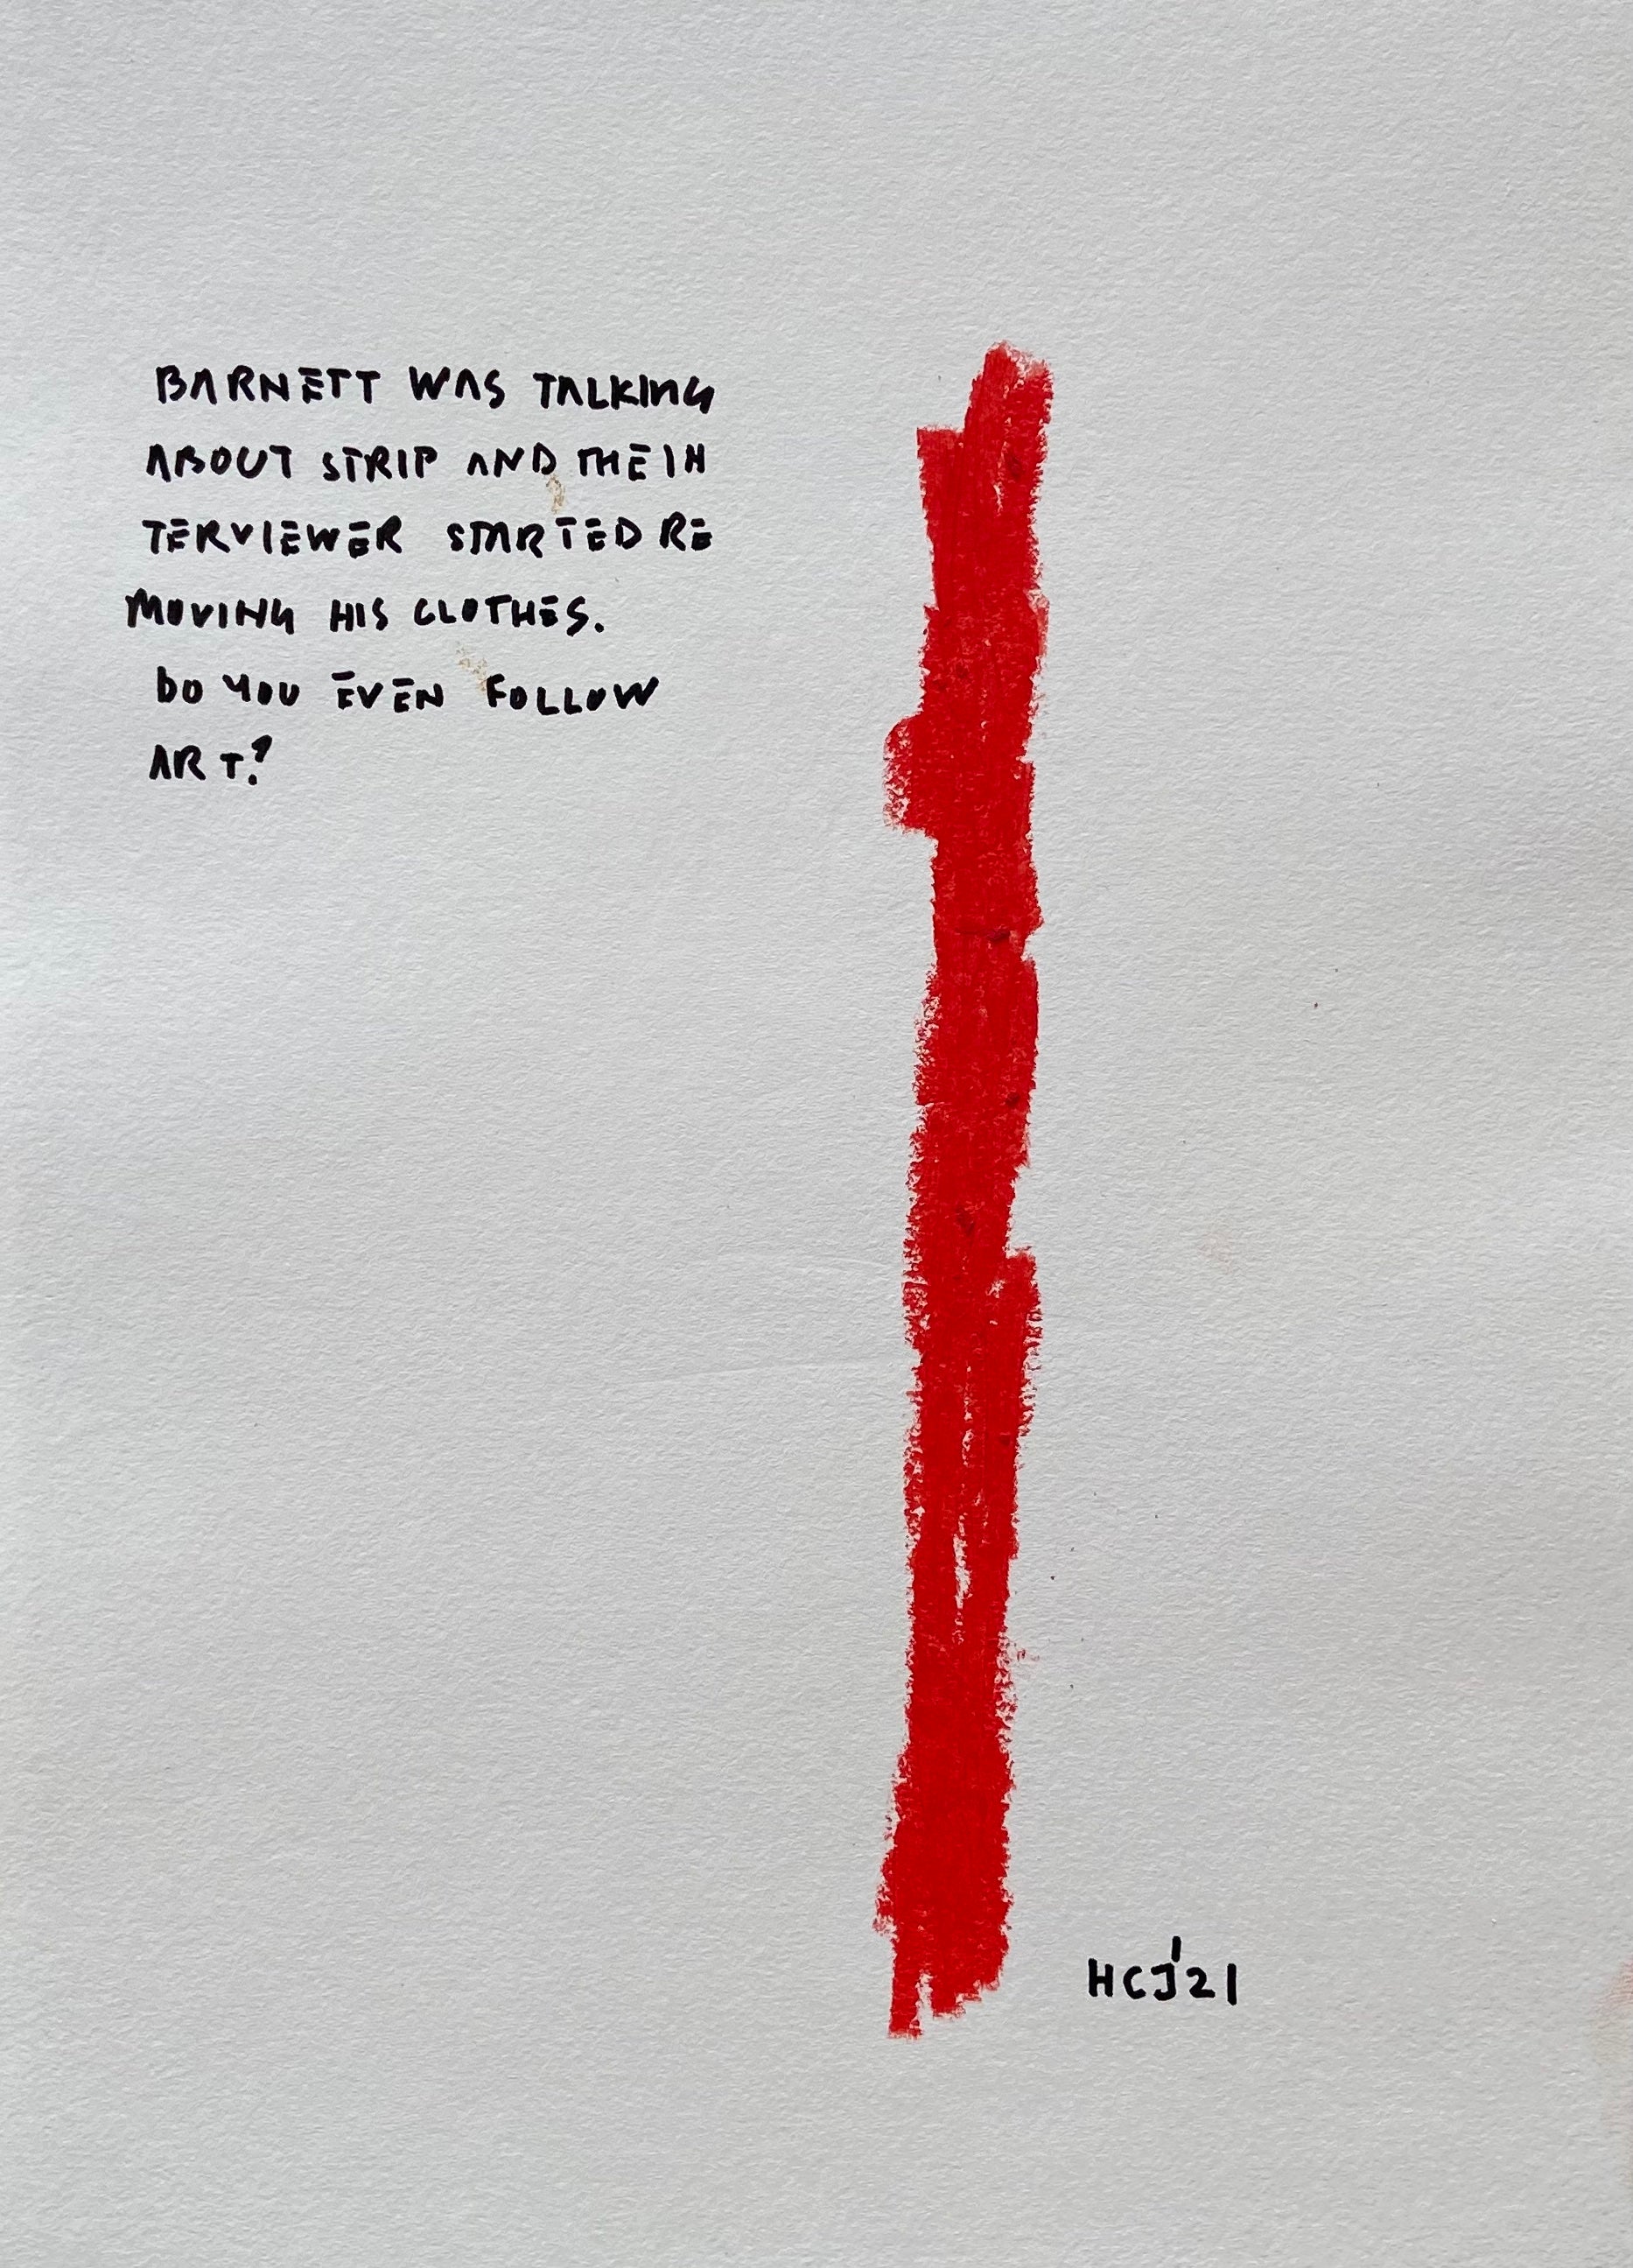 BARNETT WAS TALKING
ABOUT STRIP AND THE IN
TERVIEWER STARTED RE
MOVING HIS CLOTHES.
DO YOU EVEN FOLLOW
ART?
HCJ'21